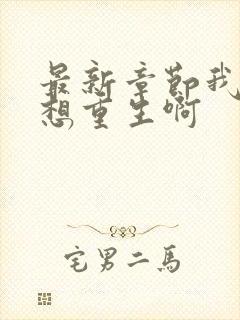 最新章節我
想重生啊
宅男二馬